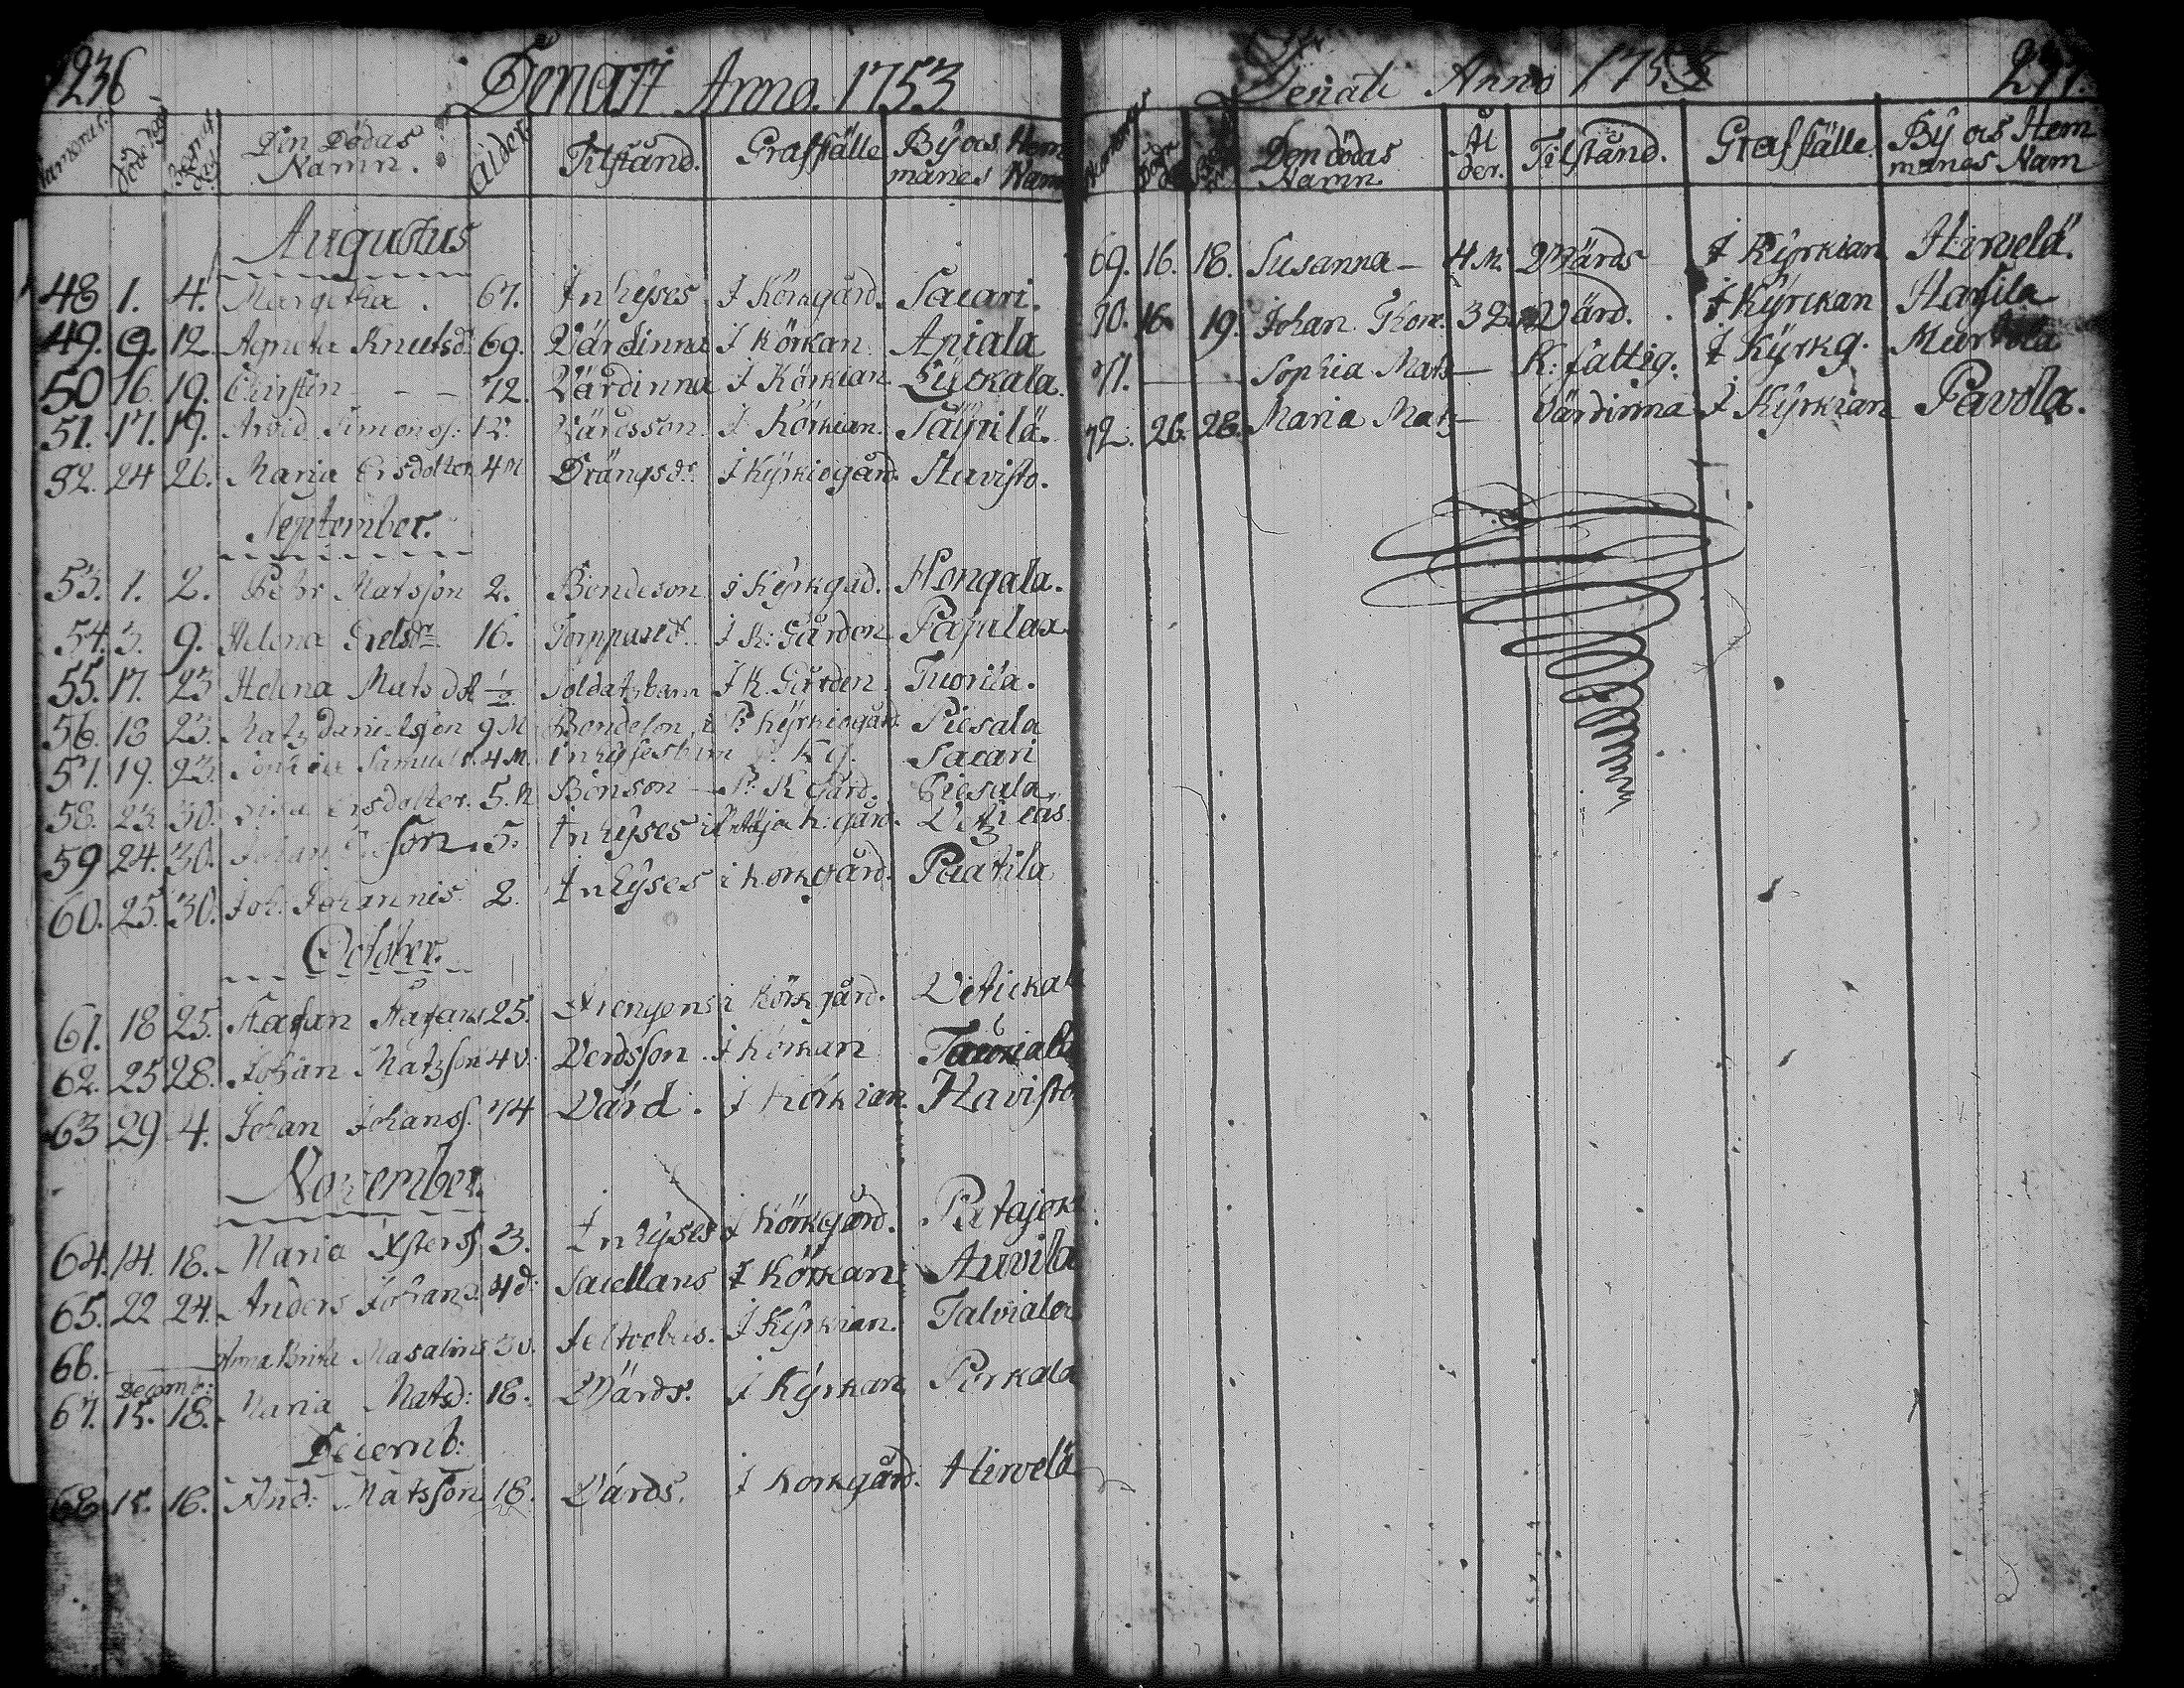 236
Denati Anno. 1753
Numerus. Död dag Begrafn: dag Den Dödas Namn. Ålder Tilstånd. Grafställe By ocs Hem manes Nam
Augustus
48 1. 4. Margetha. 67. Inhyses I Körkgård. Sacari.
49. 9. 12. Agneta Knutsdr 69. Värdinna I Körkan Apiala
50 16. 19. Christin - - - 72. Värdinna I Körkian Lyckala.
51. 17. 19. Arvid Simonss: 12. Värdsson I Körkian. Säÿrilä.
52. 24 26. Marja Ersdotter 4 M Drängsdr: I Kÿrkiogård. Havisto.
September.
53. 1. 2. Pehr Matsson 2. Bondeson i Kÿrkgård. Hongala.
54. 3. 9. Helena Erelsdr 16. Torppared: I K: Gården Pajulax
55. 17. 23 Helena Mats dotr ½ Soldatzbarn I K. Gården. Tuorila.
56. 18 23. Matz Danielsson 9 M Bondeson i Pr Kÿrkiogård. Piesala
57. 19. 23. Samuels. 4 M. Inhyses barn Kg. Sacari
58. 23. 30. Ersdotter. 5. M Bonson Pr. K Gård. Piesala
59 24. 30. Johan son. 5. Inhyses i K: gård.
60. 25. 30. Joh: Johannis. 2. Inhyses i korkgård. Paatila
October.
61. 18 25. Stafan Stafans 25. Drengens i Körkgård.
62. 25 28. Johan Matzson 4 v. Verdsson. I Körkan
63 29 4. Johan Johanss. 74 Värd. I Körkian. Havisto
November.
64. 14. 18. Maria 3. Inhyses I Körkgård. Patajok
65. 22 24. Anders Johans. 4 d. I Körkan Auvila
66. Anna Brita Masalins 3 v. I Kÿrkian. Talviala
Decemb:
67. 15. 18. Maria Matsd: 18. Värds. I Kÿrkan Perkala
Decemb:
68. 15. 16. And: Matsson 18. Värds. I korkgård. Hirvelä
Denati Anno 1753
237.
Numerus Död dag Den dödas Namn Ål der. Tilstånd. Graf ställe. By ocs Hem manes Nam
69. 16. 18. Susanna - 4 M. Värds I Kÿrkian Hirvelä.
70. 16 19. Johan Thom: 32 Värd. I Kÿrckan Hasila
71. Sophia Mats - K: fattig. I Kÿrkg. Murtola
72. 26. 28. Maria Mats - Värdinna I Kÿrkian Pavola.